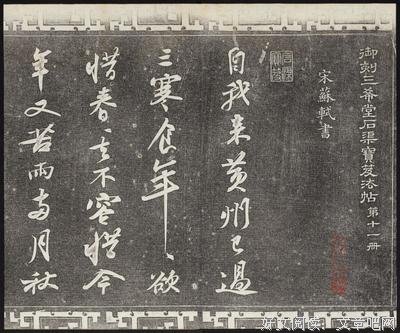 御刻三希堂石渠寶笈法帖 第十一册
宋蘇軾書
自我来黄州已過
三寒食年〻欲
惜春春去不容惜今
年又苦雨兩月秋
好文阅读：文章吧网